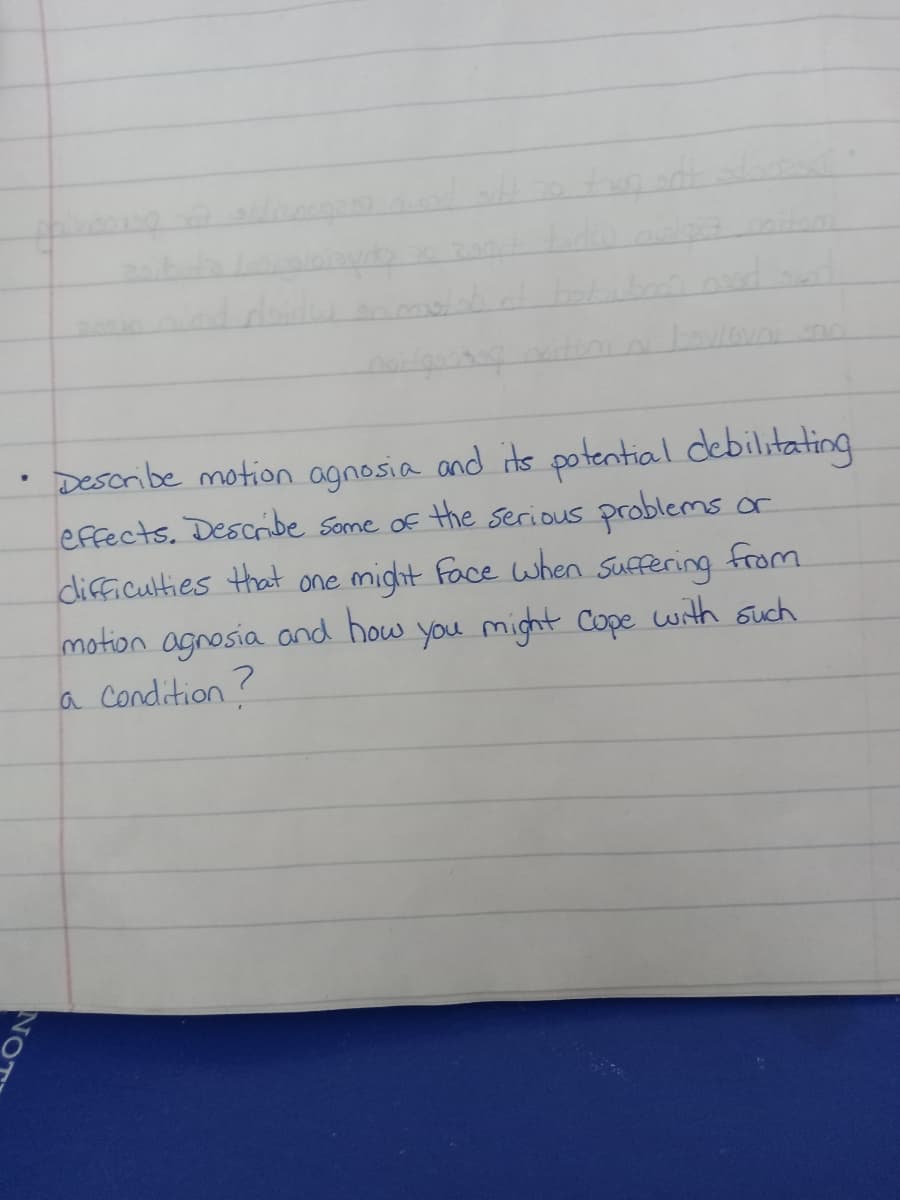 • Describe motion agnosia and its potential debilitating
effects. Describe some of the serious problems or
difficulties that one might face when suffering from
motion agnosia and how you might cope with such
a condition?